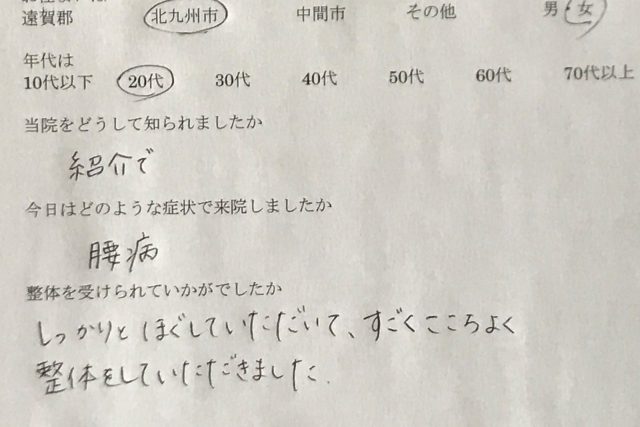 遠賀郡 北九州市 中間市 その他 男・女
年代は
10代以下 20代 30代 40代 50代 60代 70代以上
当院をどうして知られましたか
紹介で
今日はどのような症状で来院しましたか
腰病
整体を受けられていかがでしたか
しっかりとほぐしていただいて、すごくここちよく
整体をしていただきました.